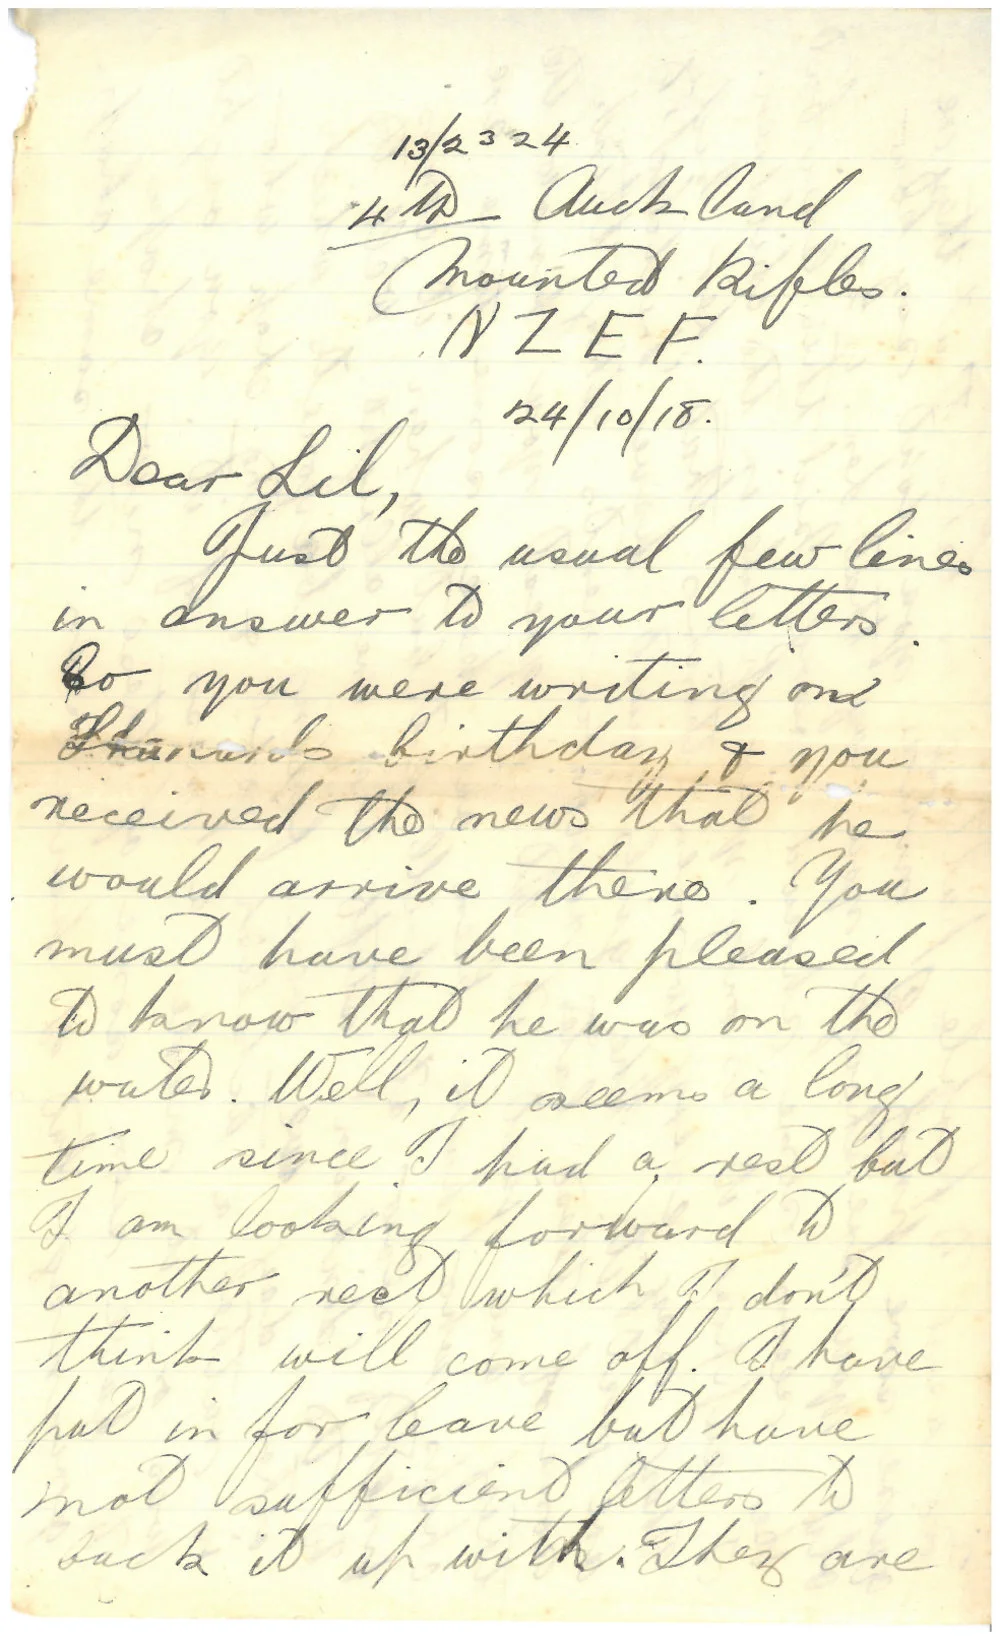 13/2324
4th Auckland
Mounted Rifles.
N Z E F.
24/10/18.
Dear Lil,
Just the usual few lines
in answer to your letters.
So you were writing on
birthday & you
received the news that he
would arrive there. You
must have been pleased
to know that he was on the
water. Well, it seems a long
time since I had a rest but
I am looking forward to
another rest which I don't
think will come off. I have
put in for leave but have
not sufficient letters to
back it up with. They are